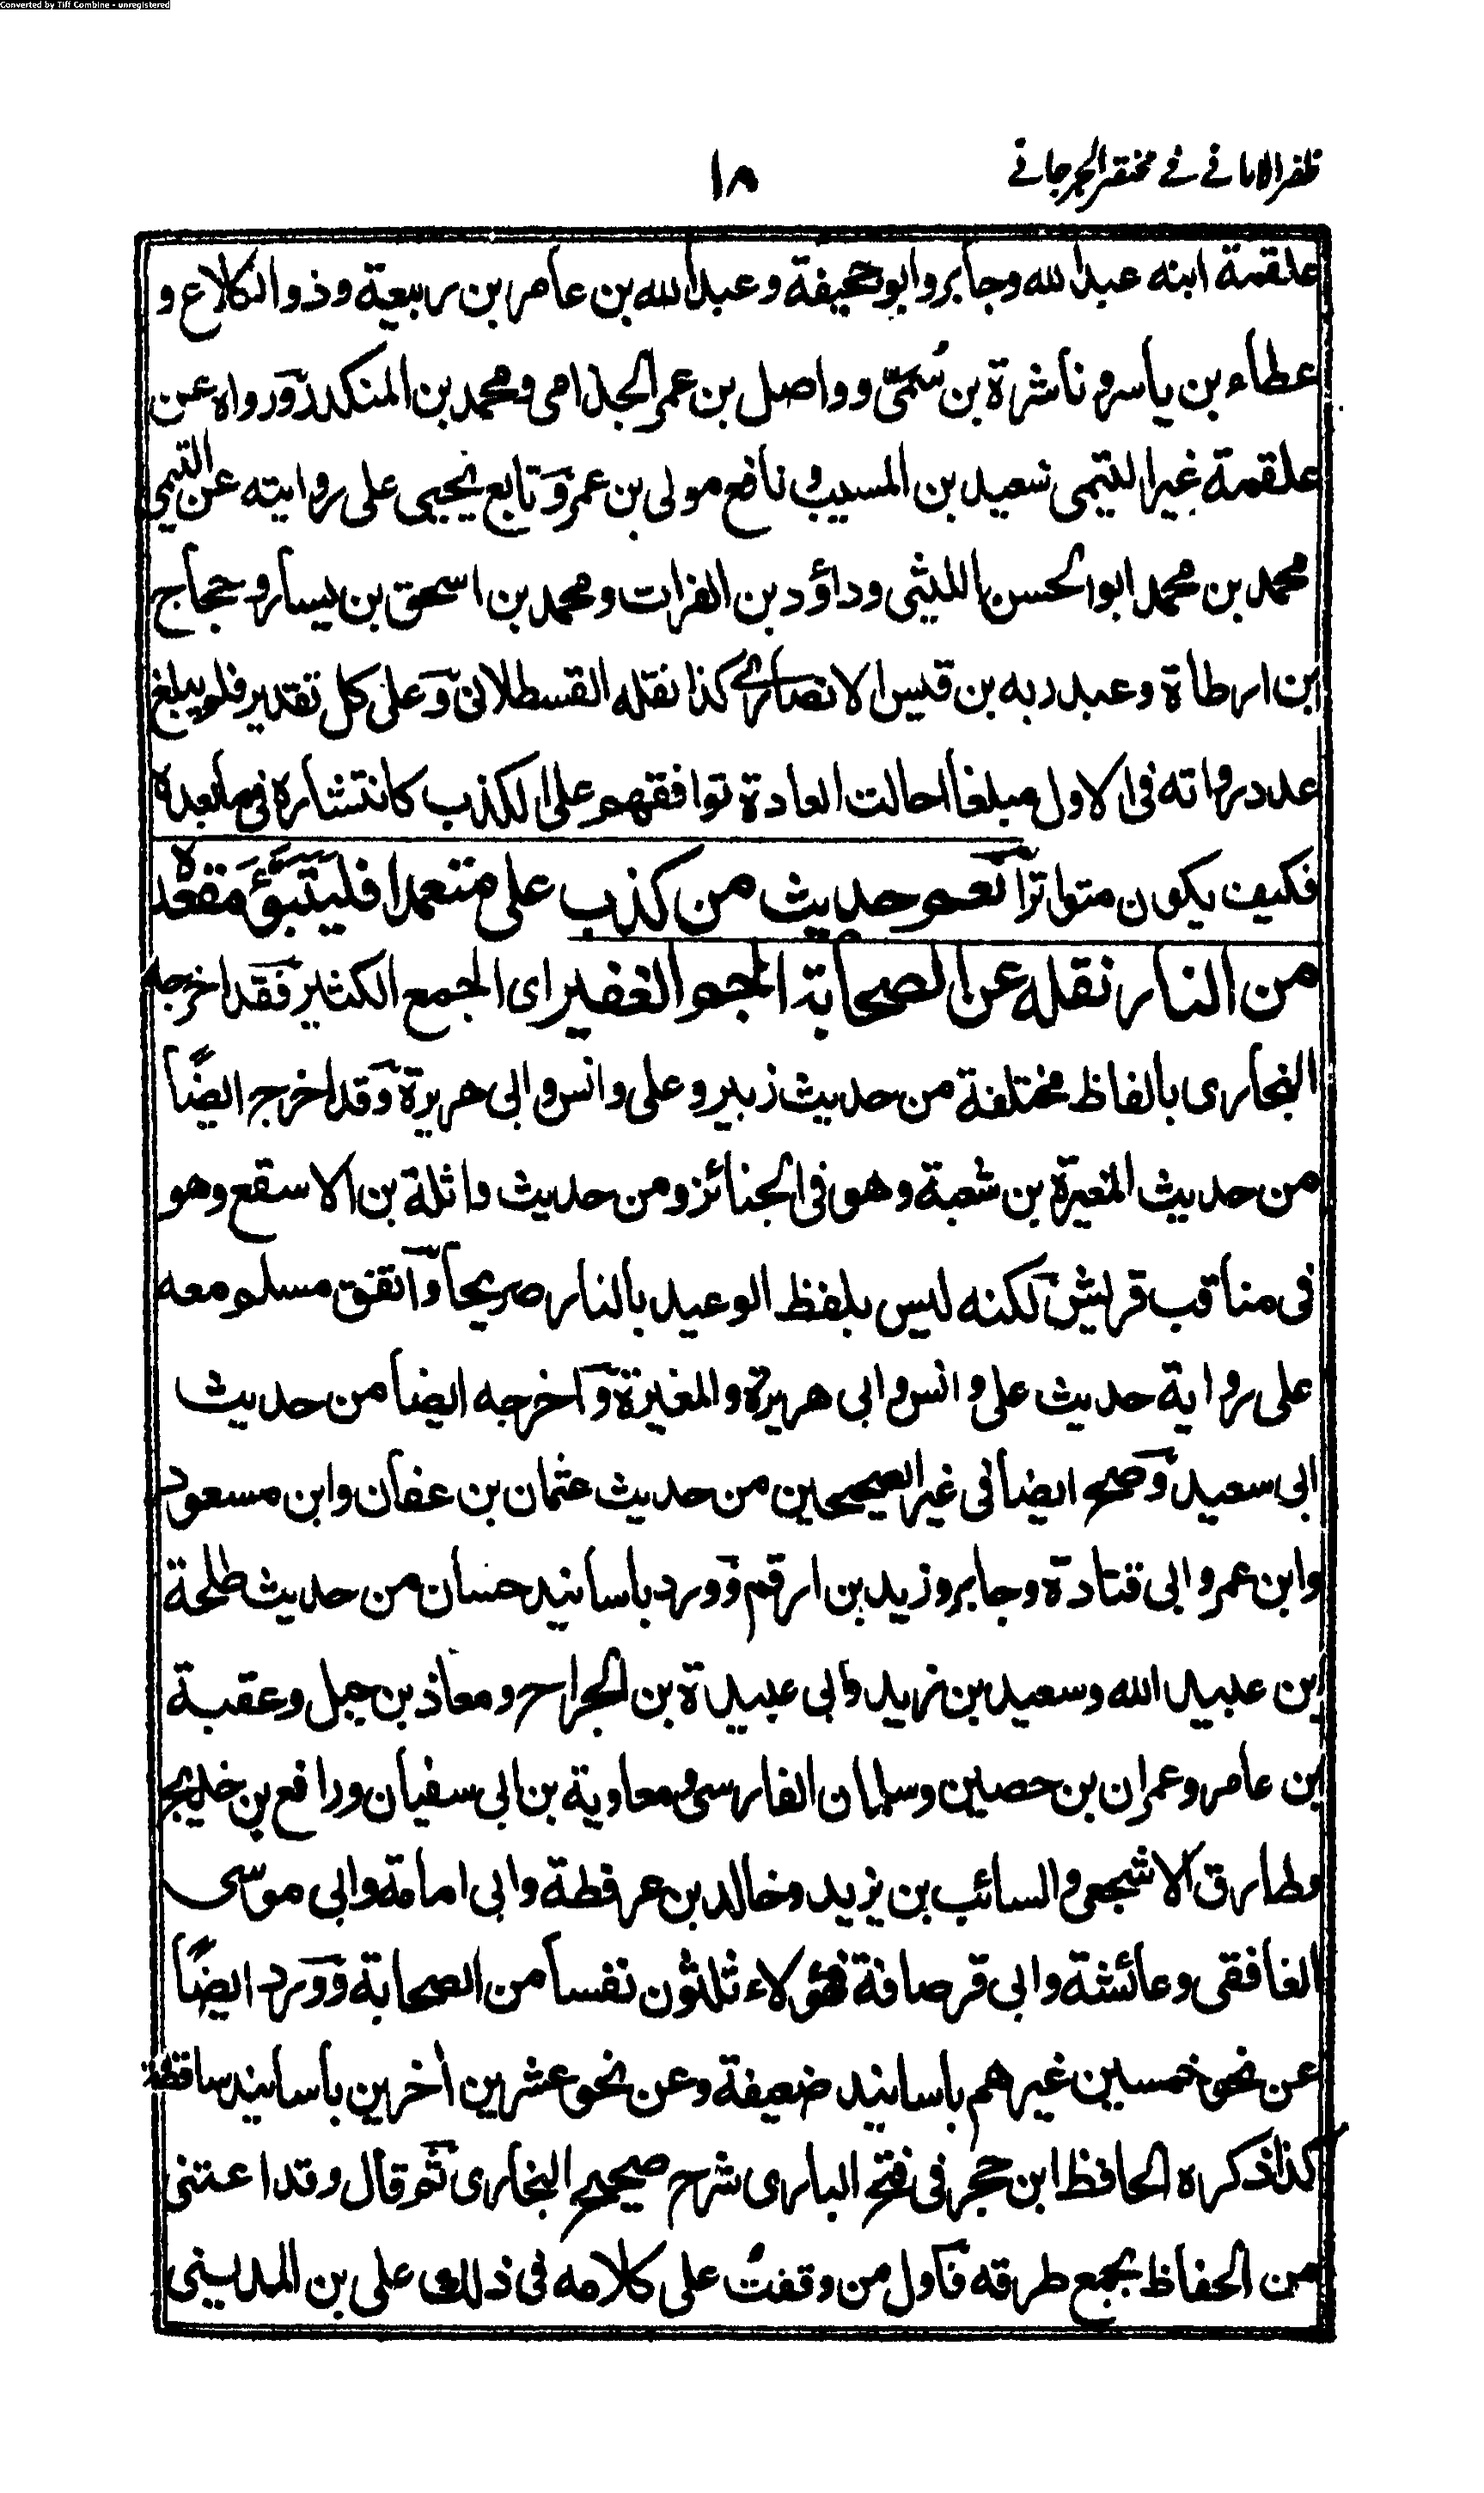 Converted by Tiff Combine - unregistered
ظفر الامانے فے مختصر الجرجانے
١٨
علقمة ابنه عبد الله وجابر وابو جحيفة وعبد الله بن عامر بن ربيعة وذو الكلاع و
عطاء بن ياسر و ناشرة بن سُمَىّ و واصل بن عمر الجذامى ومحمد بن المنكدر ورواه عن
علقمة غير التيمى سعيد بن المسيب و نافع مولى بن عمر وتابع يحيى على روايته عن التيمي
محمد بن محمد ابو الحسن الليثى وداؤد بن الفرات ومحمد بن اسحق بن يسار و حجاج
بن ارطاة وعبد ربه بن قيس الانصارى كذا نقله القسطلانى وعلى كل تقدير فلم يبلغ
عدد رواته فى الاول مبلغا احالت العادة توافقهم على الكذب كانتشاره فى ما بعده
فكيف يكون متواترا نعم حديث من كذب على متعمدا فليتبوَّئ مقعده
من النار نقله عن الصحابة الجم الغفير اى الجمع الكثير فقد اخرجه
البخارى بالفاظ مختلفة من حديث زبير وعلى وانس وابى هريرة وقد اخرج ايضًا
من حديث المغيرة بن شعبة وهو فى الجنائز ومن حديث واثلة بن الاسقع وهو
فى مناقب قريش لكنه ليس بلفظ الوعيد بالنار صريحا واتفق مسلم معه
على رواية حديث على وانس وابى هريرة والمغيرة واخرجه ايضا من حديث
ابى سعيد وصح ايضا فى غير الصحيحين من حديث عثمان بن عفان وابن مسعود
وابن عمر وابى قتادة وجابر وزيد بن ارقم وورد باسانيد حسان من حديث طلحة
ابن عبيد الله وسعيد بن زيد وابى عبيدة بن الجراح ومعاذ بن جبل وعقبة
بن عامر وعمران بن حصين وسلمان الفارسى ومعاوية بن ابى سفيان ورافع بن خديج
وطارق الاشجعى والسائب بن يزيد وخالد بن عرفطة وابى امامة وابى موسى
الغافقى وعائشة وابى قرصافة فهؤلاء ثلثون نفسا من الصحابة وورد ايضًا
عن نحو خمسين غيرهم باسانيد ضعيفة وعن نحو عشرين اخرين باسانيد ساقطة
كذا ذكره الحافظ ابن حجر فى فتح البارى شرح صحيح البخارى ثم قال وقد اعتنى
من الحفاظ بجمع طرقه فاول من وقفتُ على كلامه فى ذلك على بن المدينى